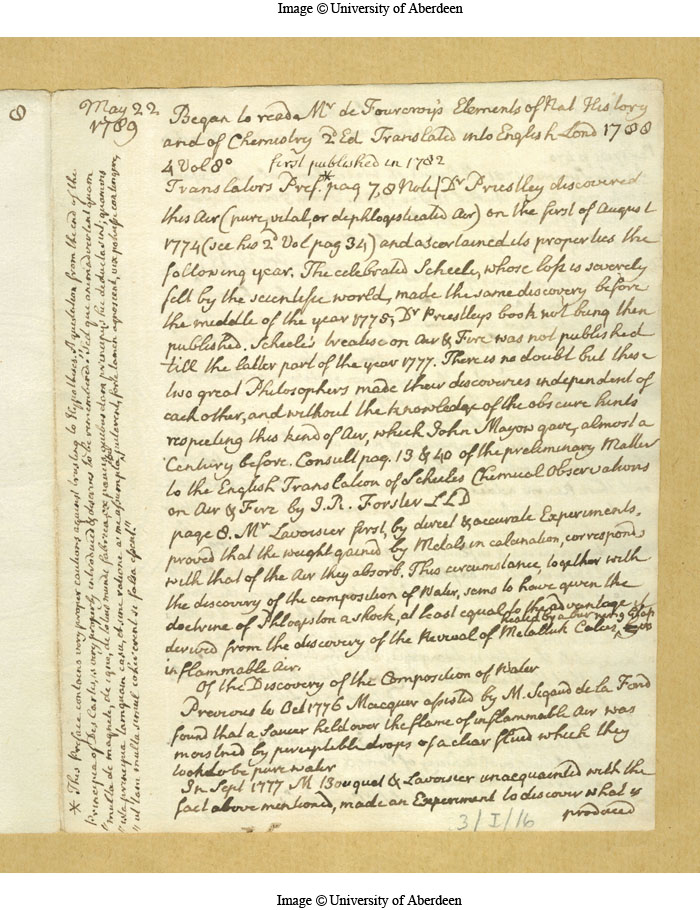 Image © University of Aberdeen
8
May 22
1789
Began to read Mr de Fourcroy's Elements of Nat History
and of Chemistry 2d Ed Translated into English Lond 1788
4 Vol 8o first published in 1782
Translators Pref.* pag 7,8 Note/ Dr Priestley discovered
this Air (pure, vital, or dephlogisticated Air) on the first of August
1774 (see his 2d Vol pag 34) and ascertained its properties the
following year. The celebrated Scheele, whose loss is severely
felt by the scientific world, made the same discovery before
the middle of the year 1775; Dr Priestleys book not being then
published. Scheele's treatise on Air & Fire was not published
till the latter part of the year 1777. There is no doubt but these
two great Philosophers made their discoveries independent of
each other, and without the knowledge of the obscure hints
respecting this kind of Air, which John Mayow gave, almost a
Century before. Consult pag. 13 & 40 of the preliminary Matter
to the English Translation of Scheeles Chemical Observations
on Air & Fire by J.R. Forster LLD
page 8. Mr Lavoisier first, by direct & accurate Experiments,
proved that the weight gained by Metals in calcination, corresponds
with that of the Air they absorb. This circumstance, together with
the discovery of the composition of Water, seems to have given the
doctrine of Phlogiston a shock, at least equal to the advantage it
derived from the discovery of the Revival of Metallick Calces
heated by a burning glass
inflammable Air.
Of the Discovery of the Composition of Water
Previous to Oct 1776 Macquer assisted by M. Sigaud de la Fond
found that a Saucer held over the flame of inflammable Air was
moistned by perceptible drops of a clear fluid which they
took to be pure water
In Sept 1777 M Bouquet & Lavoisier unacquainted with the
fact above mentioned, made an Experiment to discover what is
produced
3/I/16
* This Preface contains very proper cautions against trusting to Hypotheses. A quotation from the end of the
Principia of Des Cartes, is very properly introduced & deserves to be remembered. "Sed qui animadvertent quam
"multa de magnete, de igne, de totius mundi fabrica, ex paucis quibusdam principiis hic deducta sint; quamvis
"ista principia tamquam casu, et sine ratione a me assumpta putarent, forte tamen agnoscent, vix potuisse contingere,
"ut tam multa simul cohærerent si falsa essent."
Image © University of Aberdeen